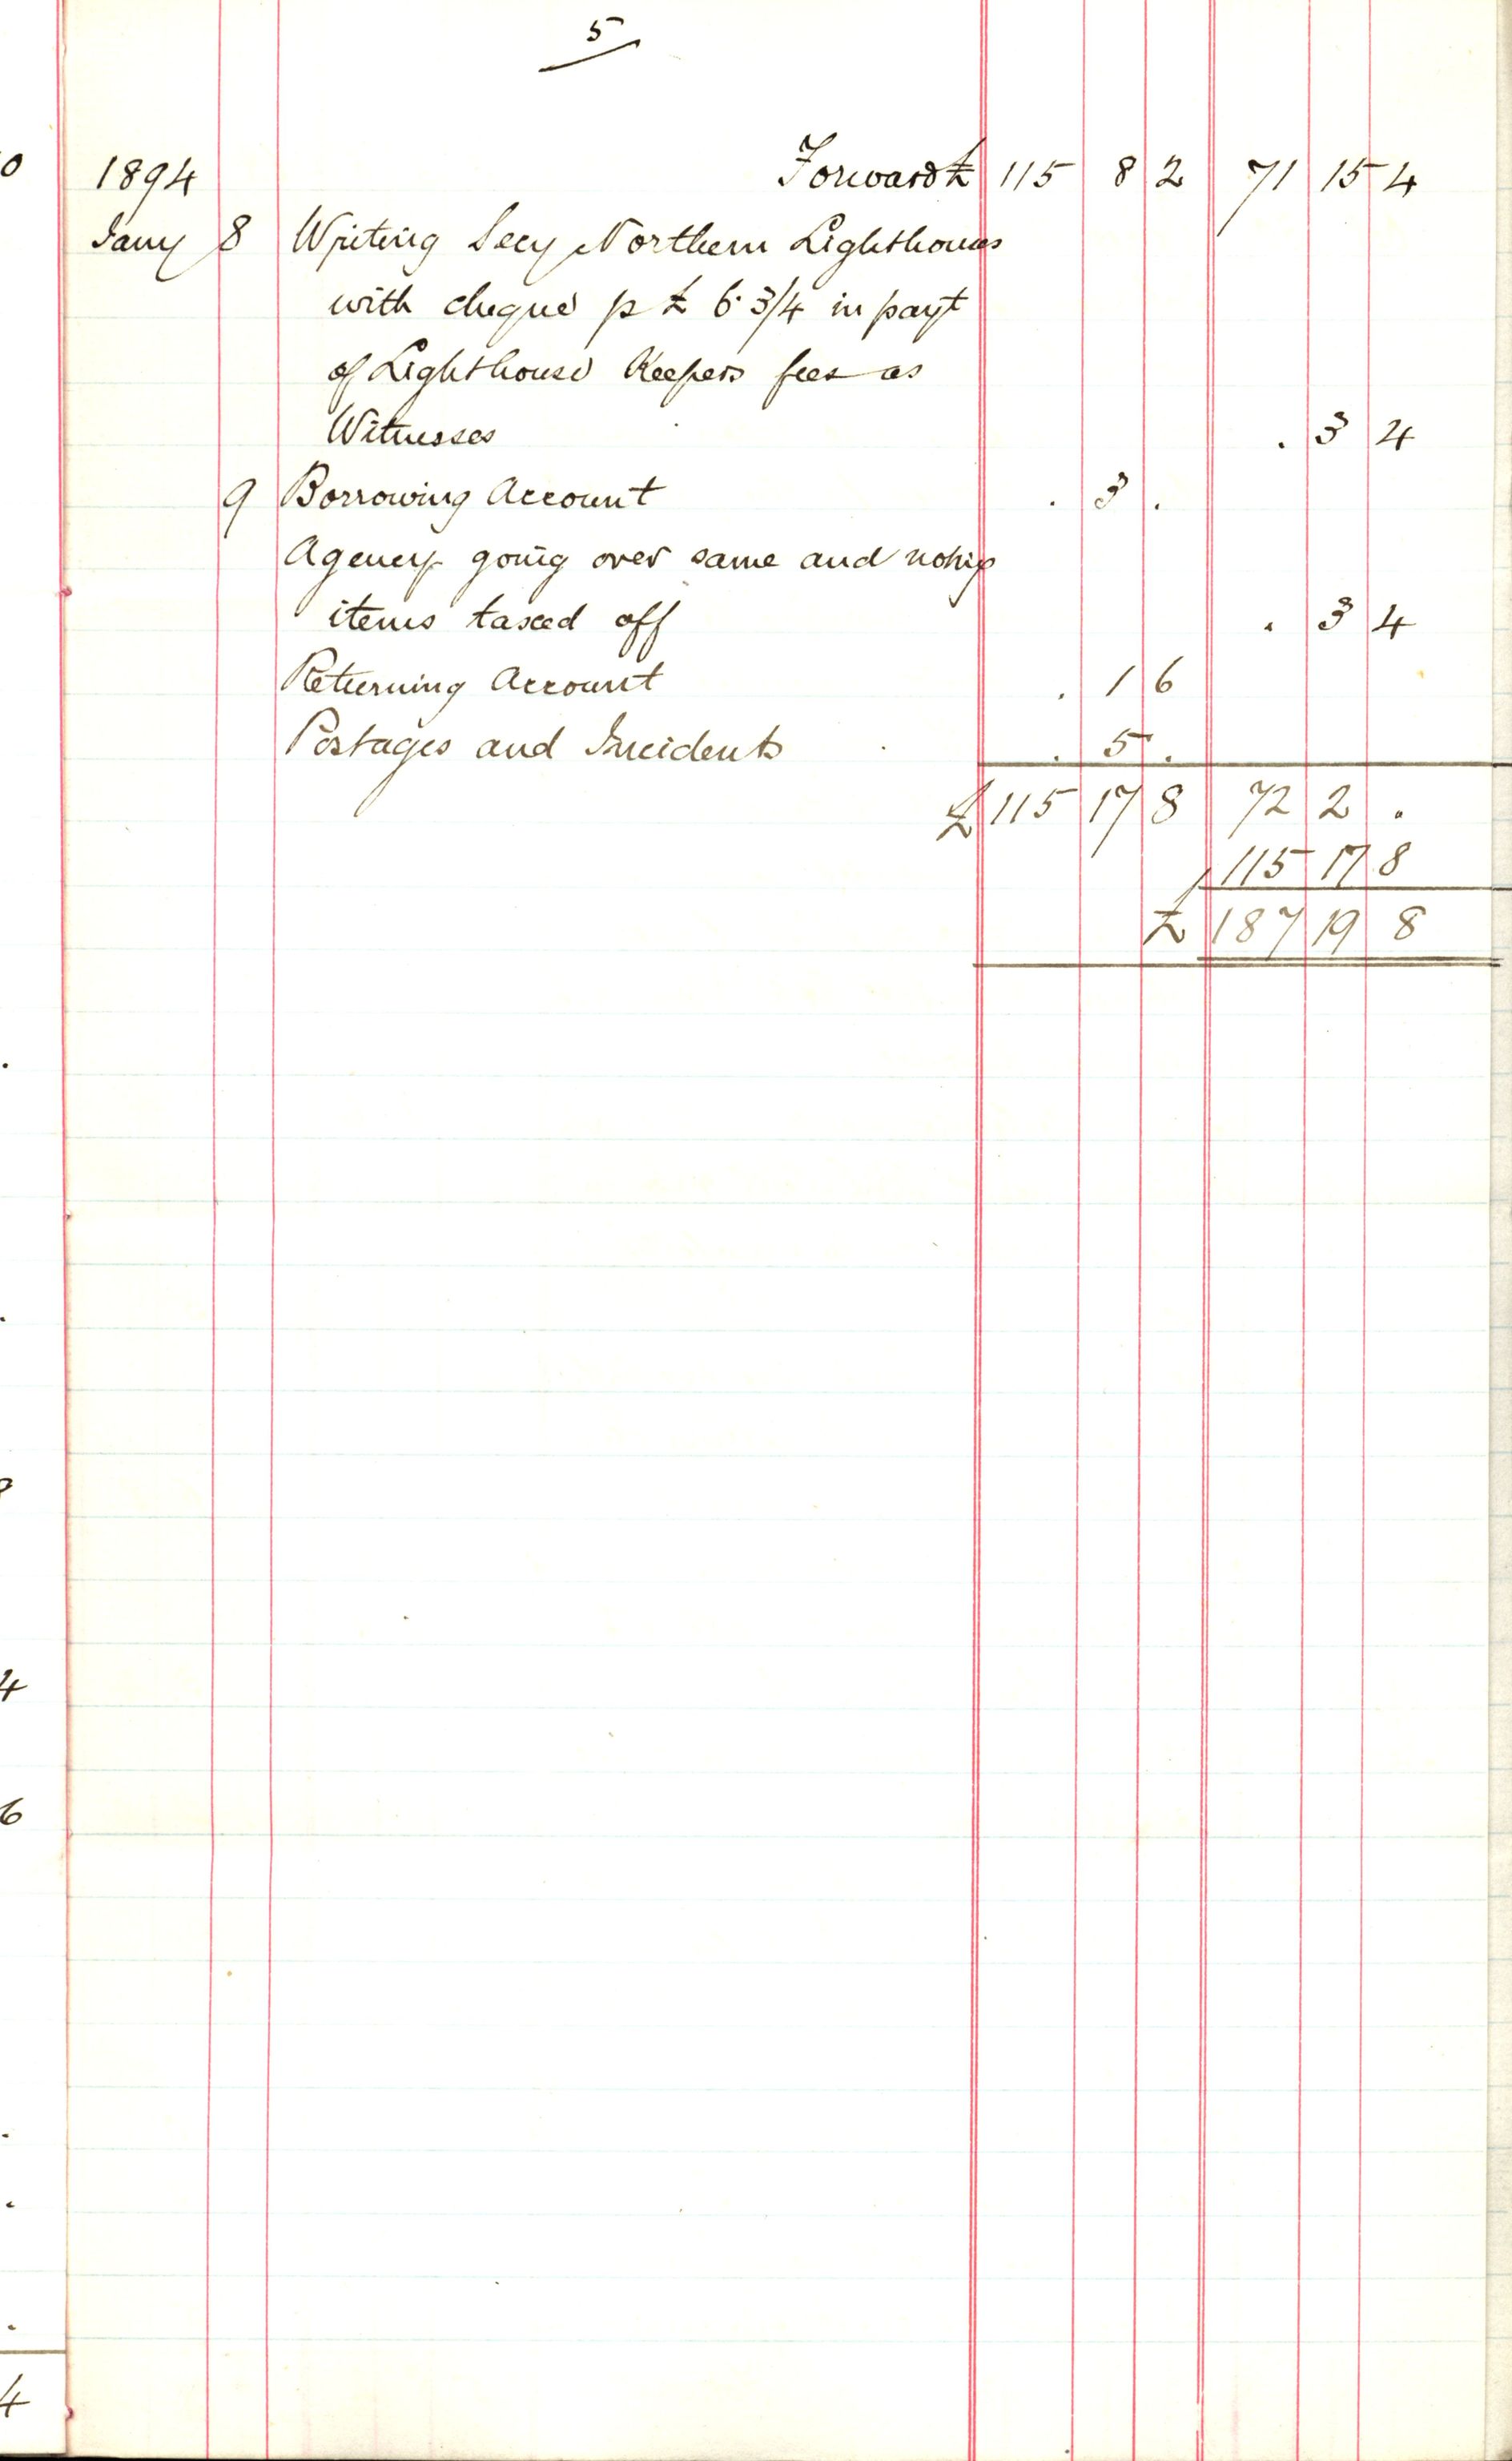 5
1894 Forward £ 115 8 2 71 15 4
Jany 8 Writing Secy Northern Lighthouses
with cheque p £ 6. 3/4 in payt
of Lighthouse Keepers fees as
Witnesses . 3 4
9 Borrowing Account . 3 .
Agency going over same and noting
items taxed off . 3 4
Returning Account . 1 6
Postages and Incidents . 5 .
£ 115 17 8 72 2 .
115 17 8
£ 187 19 8